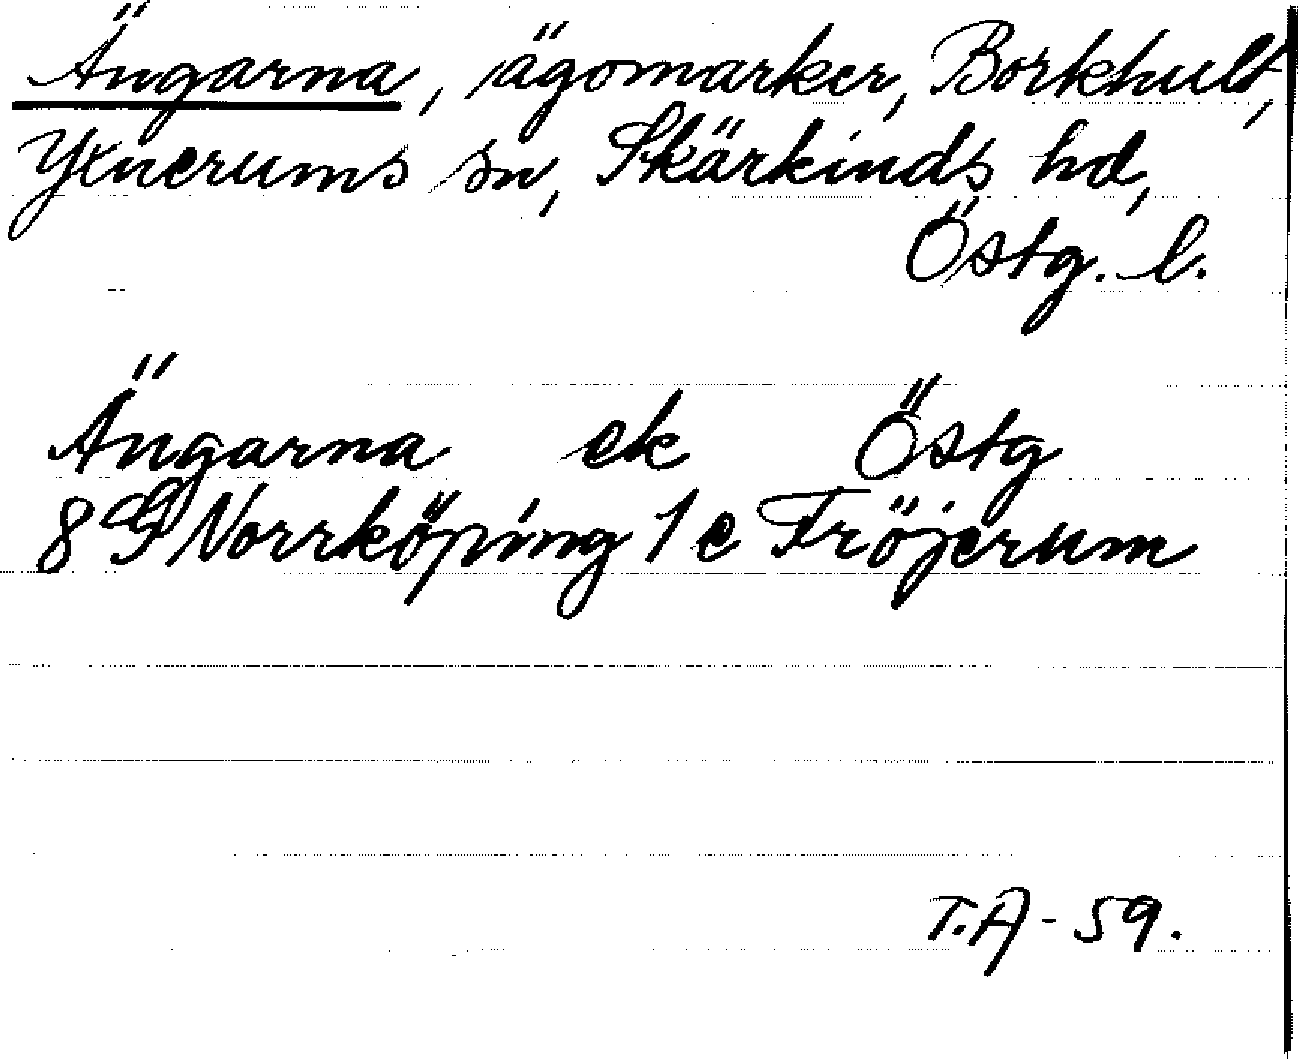 Ängarna, ägomarker, Borkhult,
Yxnerums sn, Skärkinds hd,
Östg. l.
Ängarna ek Östg
8 G Norrköping 1 e Fröjerum
T.A - 59.